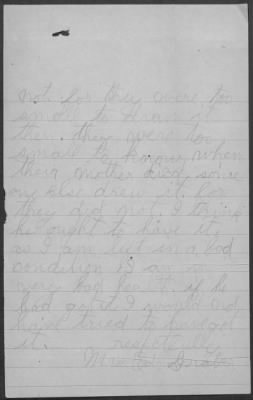 not for they were too
small to
then. they were too
small to know when
their mother died some
one else drew it for
they did not I think
he ought to have it
as I am left in a bad
condition I am in
very bad health if he
had got it I would not
have tried to have got
it. respectfully
Mrs